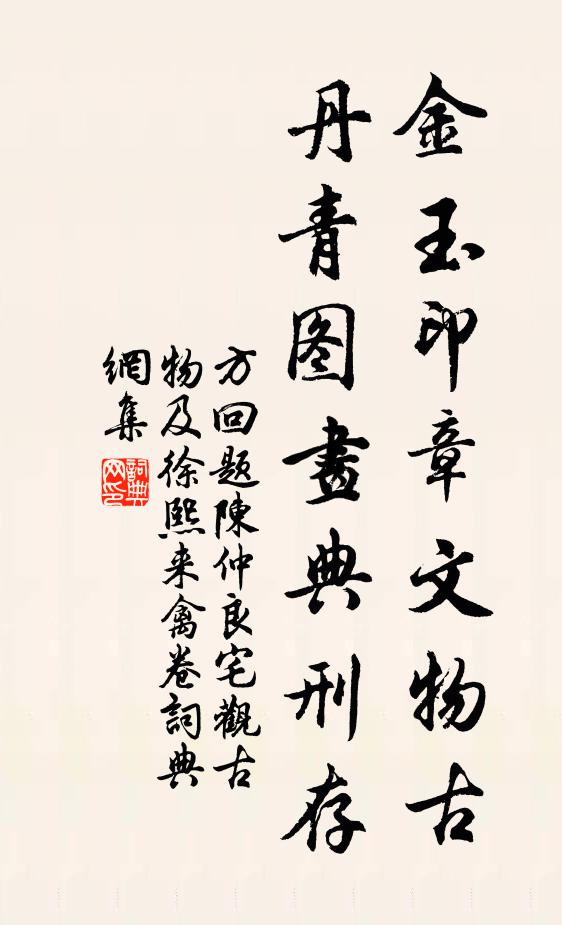 金玉印章文物古
丹青图畫典刑存
方回题陳仲良宅觀古
物及徐熙来禽卷詞典
網集
詞典
网印